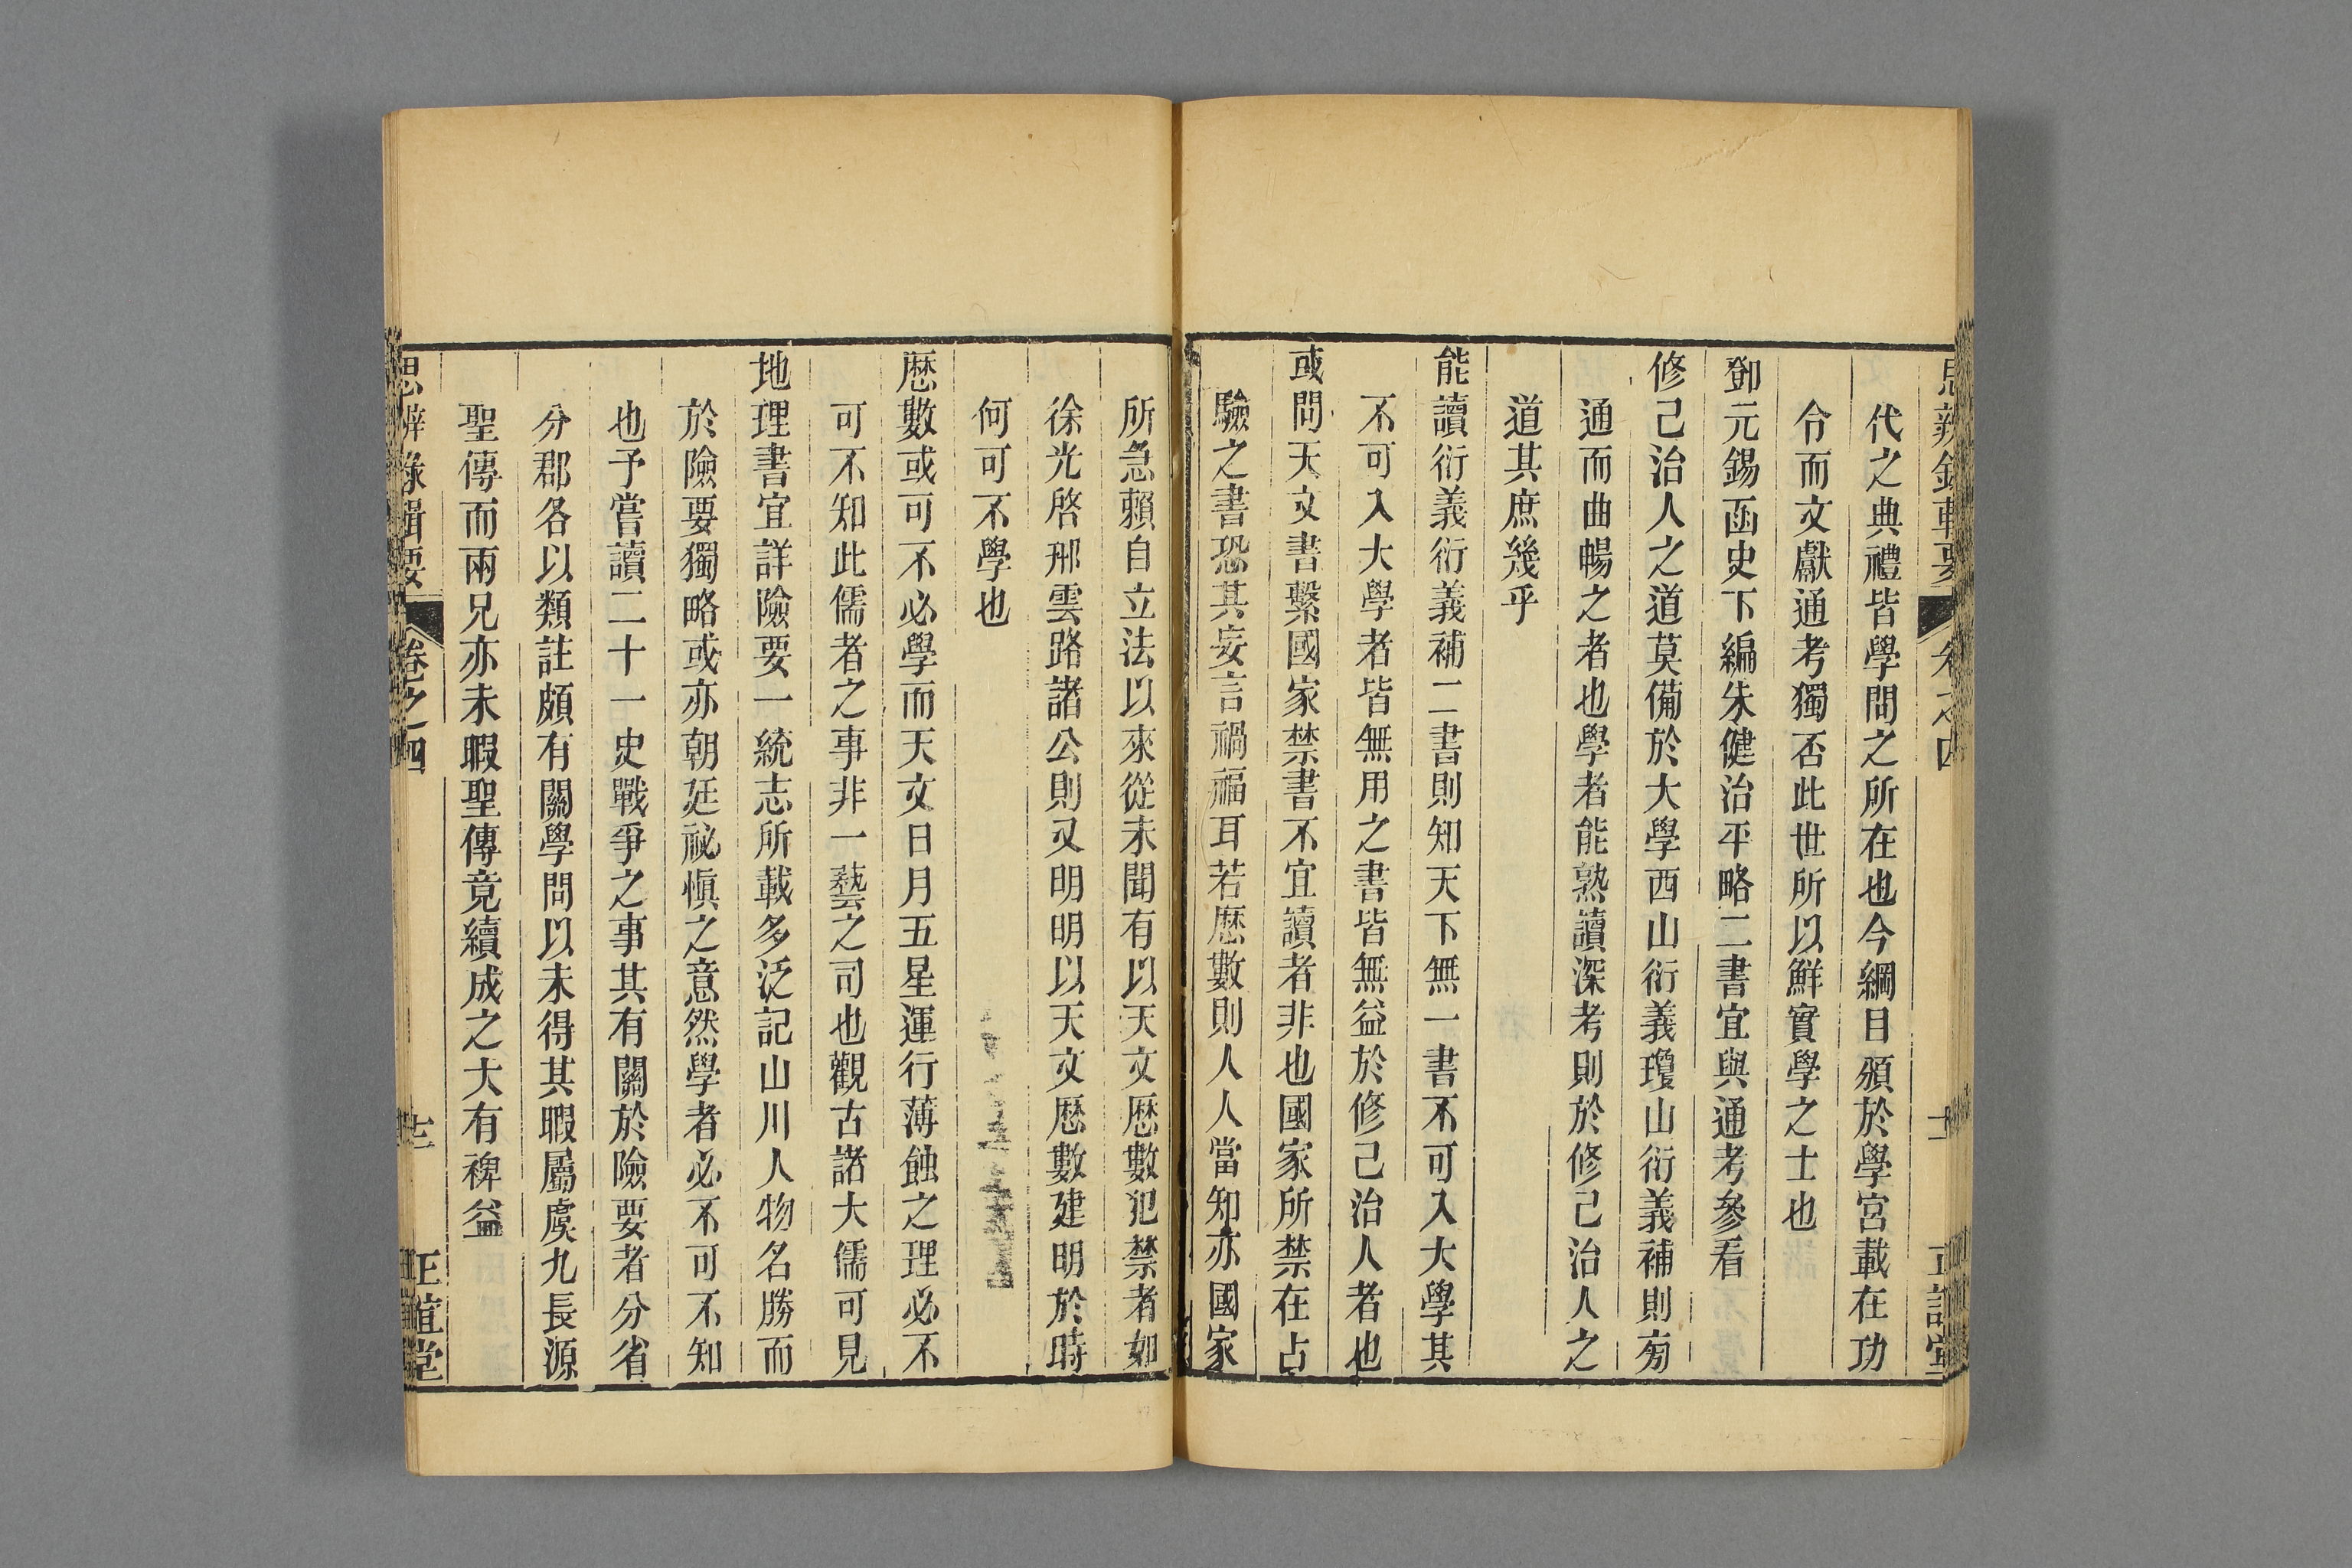 代之典禮皆學問之所在也今綱目頒於學宮載在功
令而文獻通考獨否此世所以鮮實學之士也
鄧元錫函史下編朱健治平略二書宜與通考參看
修己治人之道莫備於大學西山衍義瓊山衍義補則旁
通而曲暢之者也學者能熟讀深考則於修己治人之
道其庶幾乎
能讀衍義衍義補二書則知天下無一書不可入大學其
不可入大學者皆無用之書皆無益於修己治人者也
或問天文書繫國家禁書不宜讀者非也國家所禁在占
驗之書恐其妄言禍福耳若厯數則人人當知亦國家
所急賴自立法以來從未聞有以天文厯數犯禁者如
徐光啓邢雲路諸公則又明明以天文厯數建明於時
何可不學也
厯數或可不必學而天文日月五星運行薄蝕之理必不
可不知此儒者之事非一藝之司也觀古諸大儒可見
地理書宜詳險要一統志所載多泛記山川人物名勝而
於險要獨略或亦朝廷祕愼之意然學者必不可不知
也予嘗讀二十一史戰爭之事其有關於險要者分省
分郡各以類註頗有關學問以未得其暇屬虞九長源
聖傳而兩兄亦未暇聖傳竟續成之大有裨益
思辨錄輯要
卷之四
十三
正誼堂